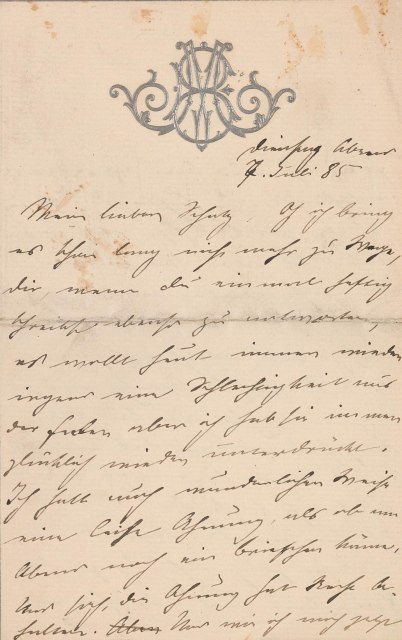 Dienstag Abend
7. Juli 85
Mein lieber Schatz, ich bring
es schon lang nicht mehr zu Wege,
dir, wenn du einmal heftig
schreibst, ebenso zu antworten,
es wollt heut immer wieder
irgend eine Schlechtigkeit aus
der Feder aber ich hab sie immer
glücklich wieder unterdrückt.
Ich hatt auch wunderlicher Weise
eine leise Ahnung, als ob am
Abend noch ein Briefchen käme,
und sieh, die Ahnung hat Recht be-
halten. Und mir ich jetzt